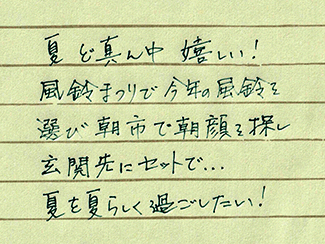 夏ど真ん中 嬉しい!
風鈴まつりで今年の風鈴を
選び朝市で朝顔を探し
玄関先にセットで...
夏を夏らしく過ごしたい!